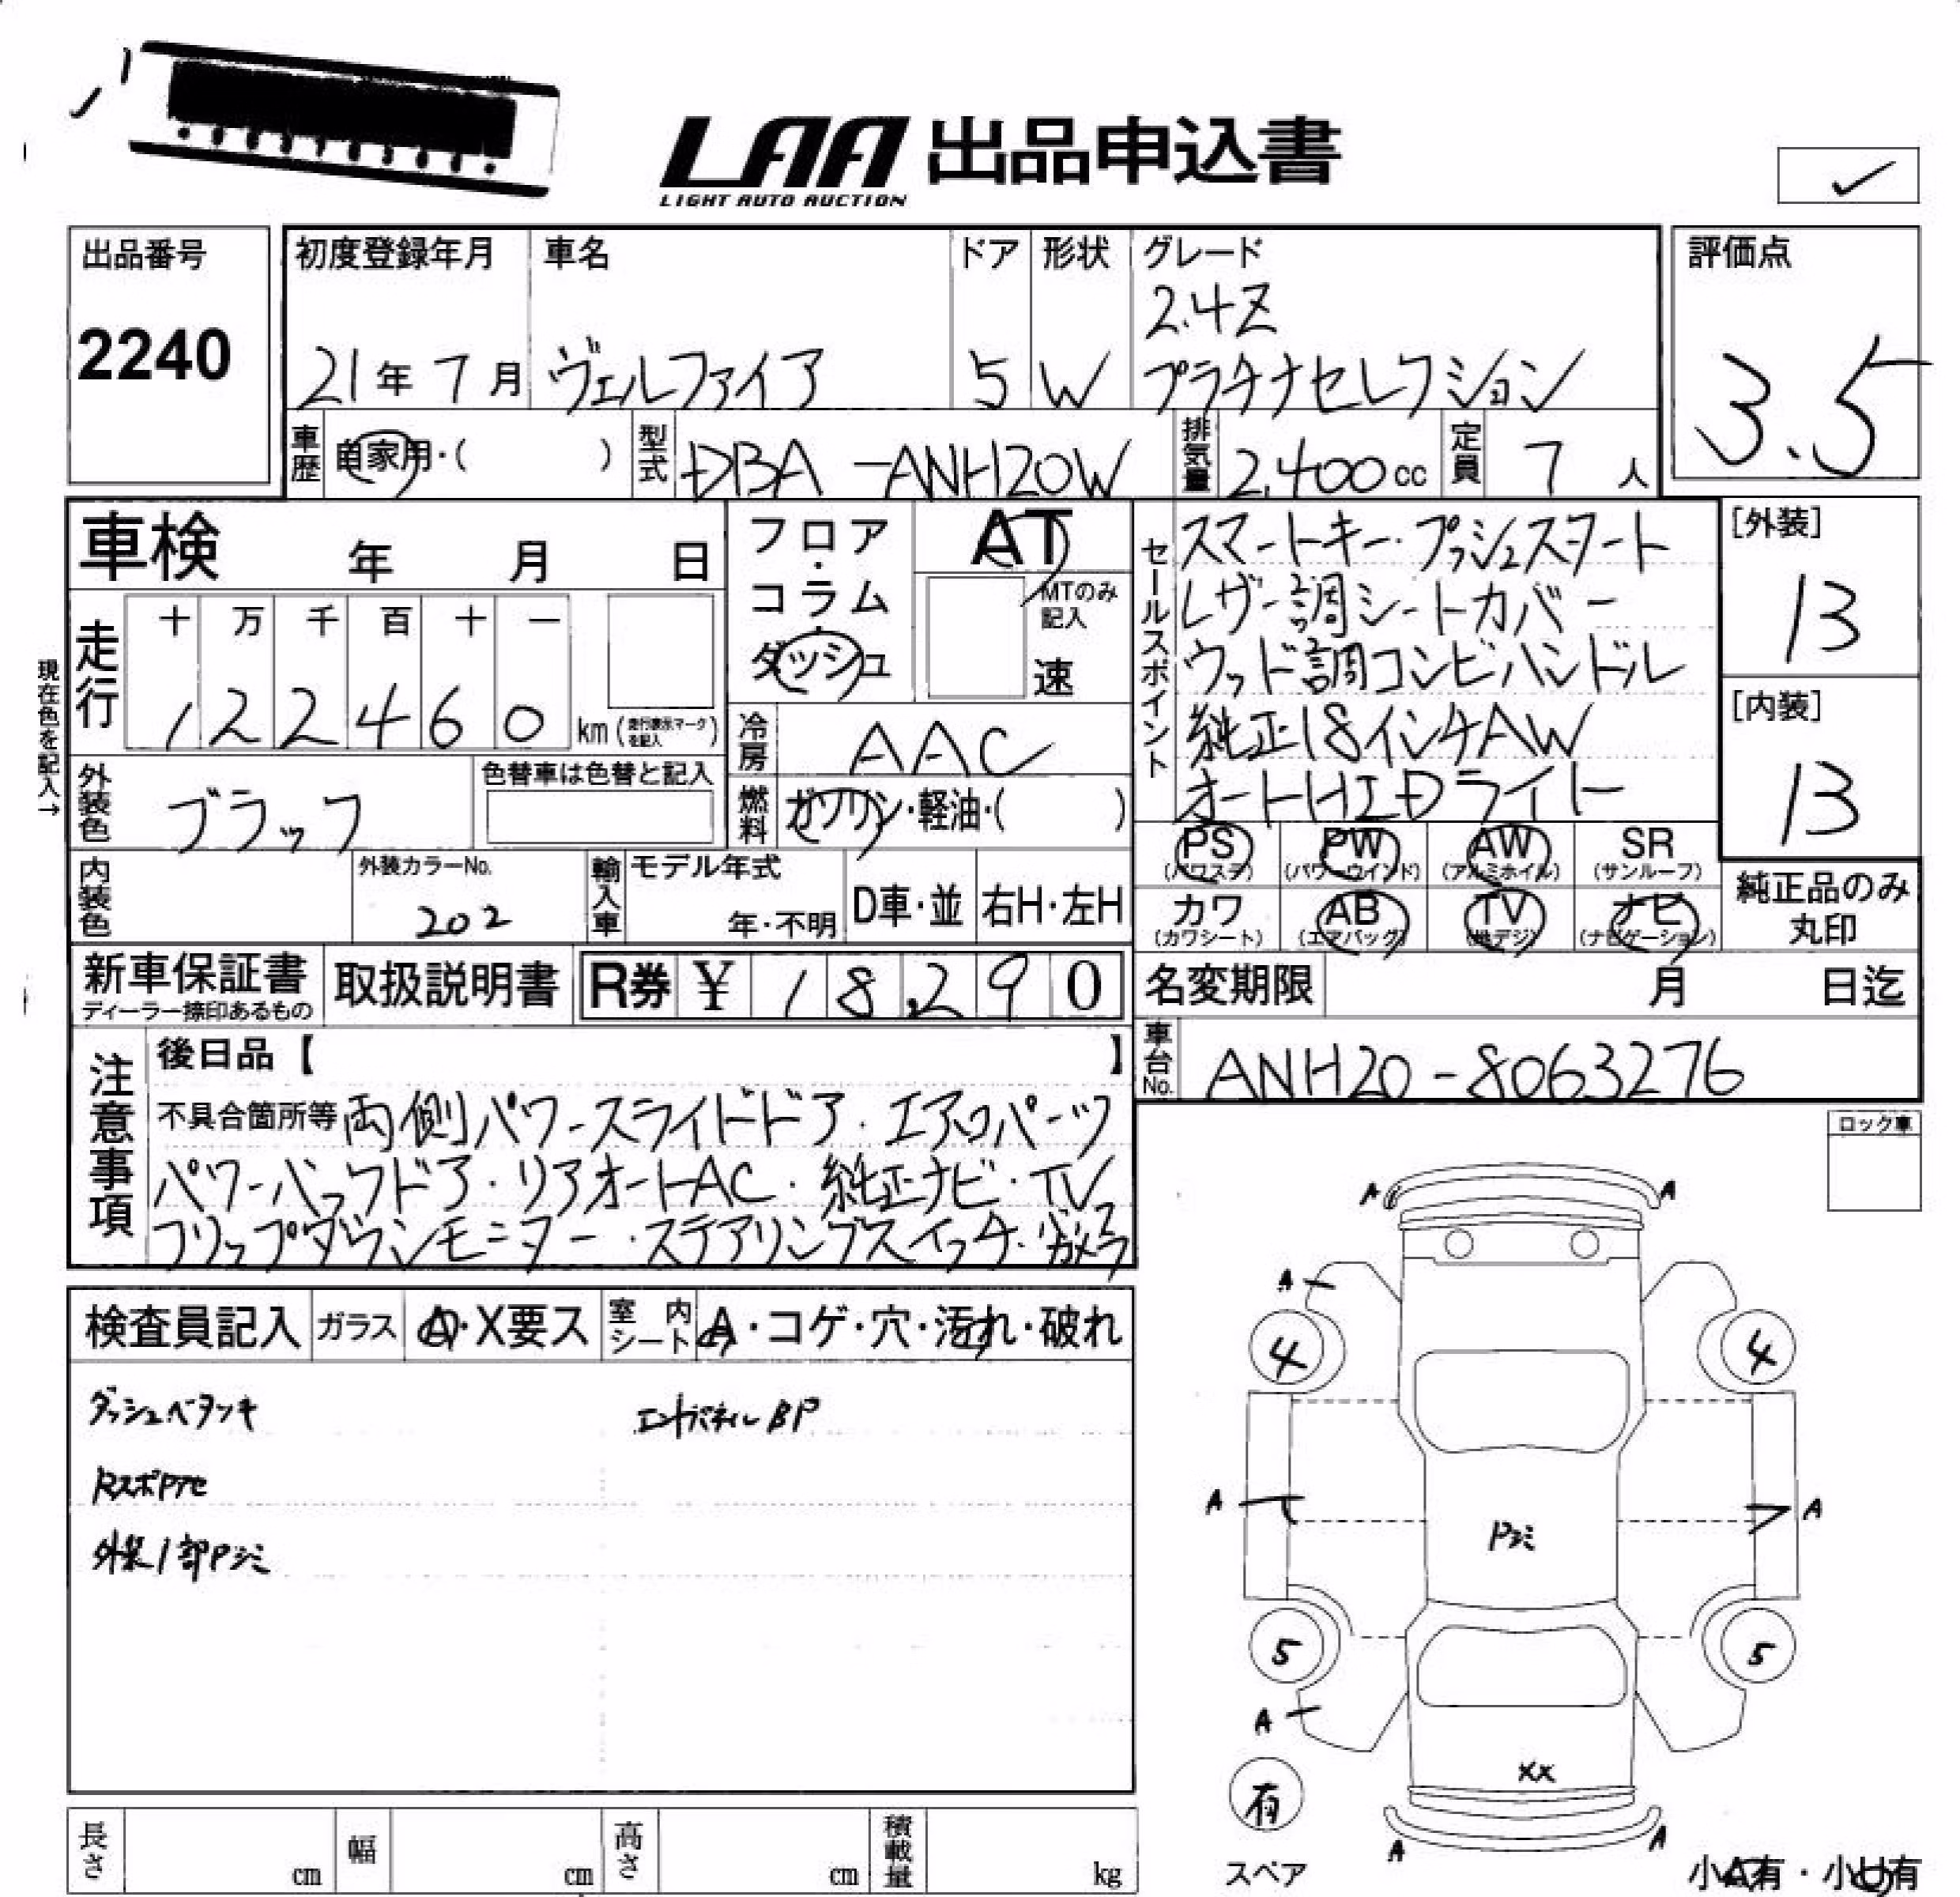 LAA 出品申込書
LIGHT AUTO AUCTION
出品番号
2240
初度登録年月
21年7月
車名
ヴェルファイア
ドア
5
形状
W
グレード
2.4Z
プラチナセレクション
評価点
3.5
車歴 自家用・( )
型式 DBA-ANH20W
排気量 2,400cc
定員 7人
車検 年 月 日
フロア・コラム・ダッシュ
AT
MTのみ記入
速
現在色を記入→
走行
十 万 千 百 十 一
1 2 2 4 6 0 km (走行表示マークを記入)
冷房 AAC
燃料 ガソリン・軽油・( )
外装色 ブラック
色替車は色替と記入
内装色
外装カラーNo.
202
輸入車
モデル年式
年・不明
D車・並
右H・左H
セールスポイント
スマートキー・プッシュスタート
レザー調シートカバー
ウッド調コンビハンドル
純正18インチAW
オートHIDライト
[外装]
13
[内装]
13
PS (パワステ)
PW (パワーウインド)
AW (アルミホイル)
SR (サンルーフ)
カワ (カワシート)
AB (エアバッグ)
TV (地デジ)
ナビ (ナビゲーション)
純正品のみ丸印
新車保証書
ディーラー捺印あるもの
取扱説明書
R券 ¥ 18,290
名変期限 月 日迄
車台No. ANH20-8063276
注意事項
後日品【 】
不具合箇所等 両側パワースライドドア・エアロパーツ
パワーバックドア・リアオートAC・純正ナビ・TV
フリップダウンモニター・ステアリングスイッチ・
ロック車
検査員記入
ガラス A・X要ス
室内シート A・コゲ・穴・汚れ・破れ
ダッシュベタツキ
エンドパネルBP
RスポPアセ
外装1部Pシミ
A
A
A
4
4
A
A
Pシミ
5
5
A
XX
有
スペア
A
A
小A有・小U有
長さ cm
幅 cm
高さ cm
積載量 kg